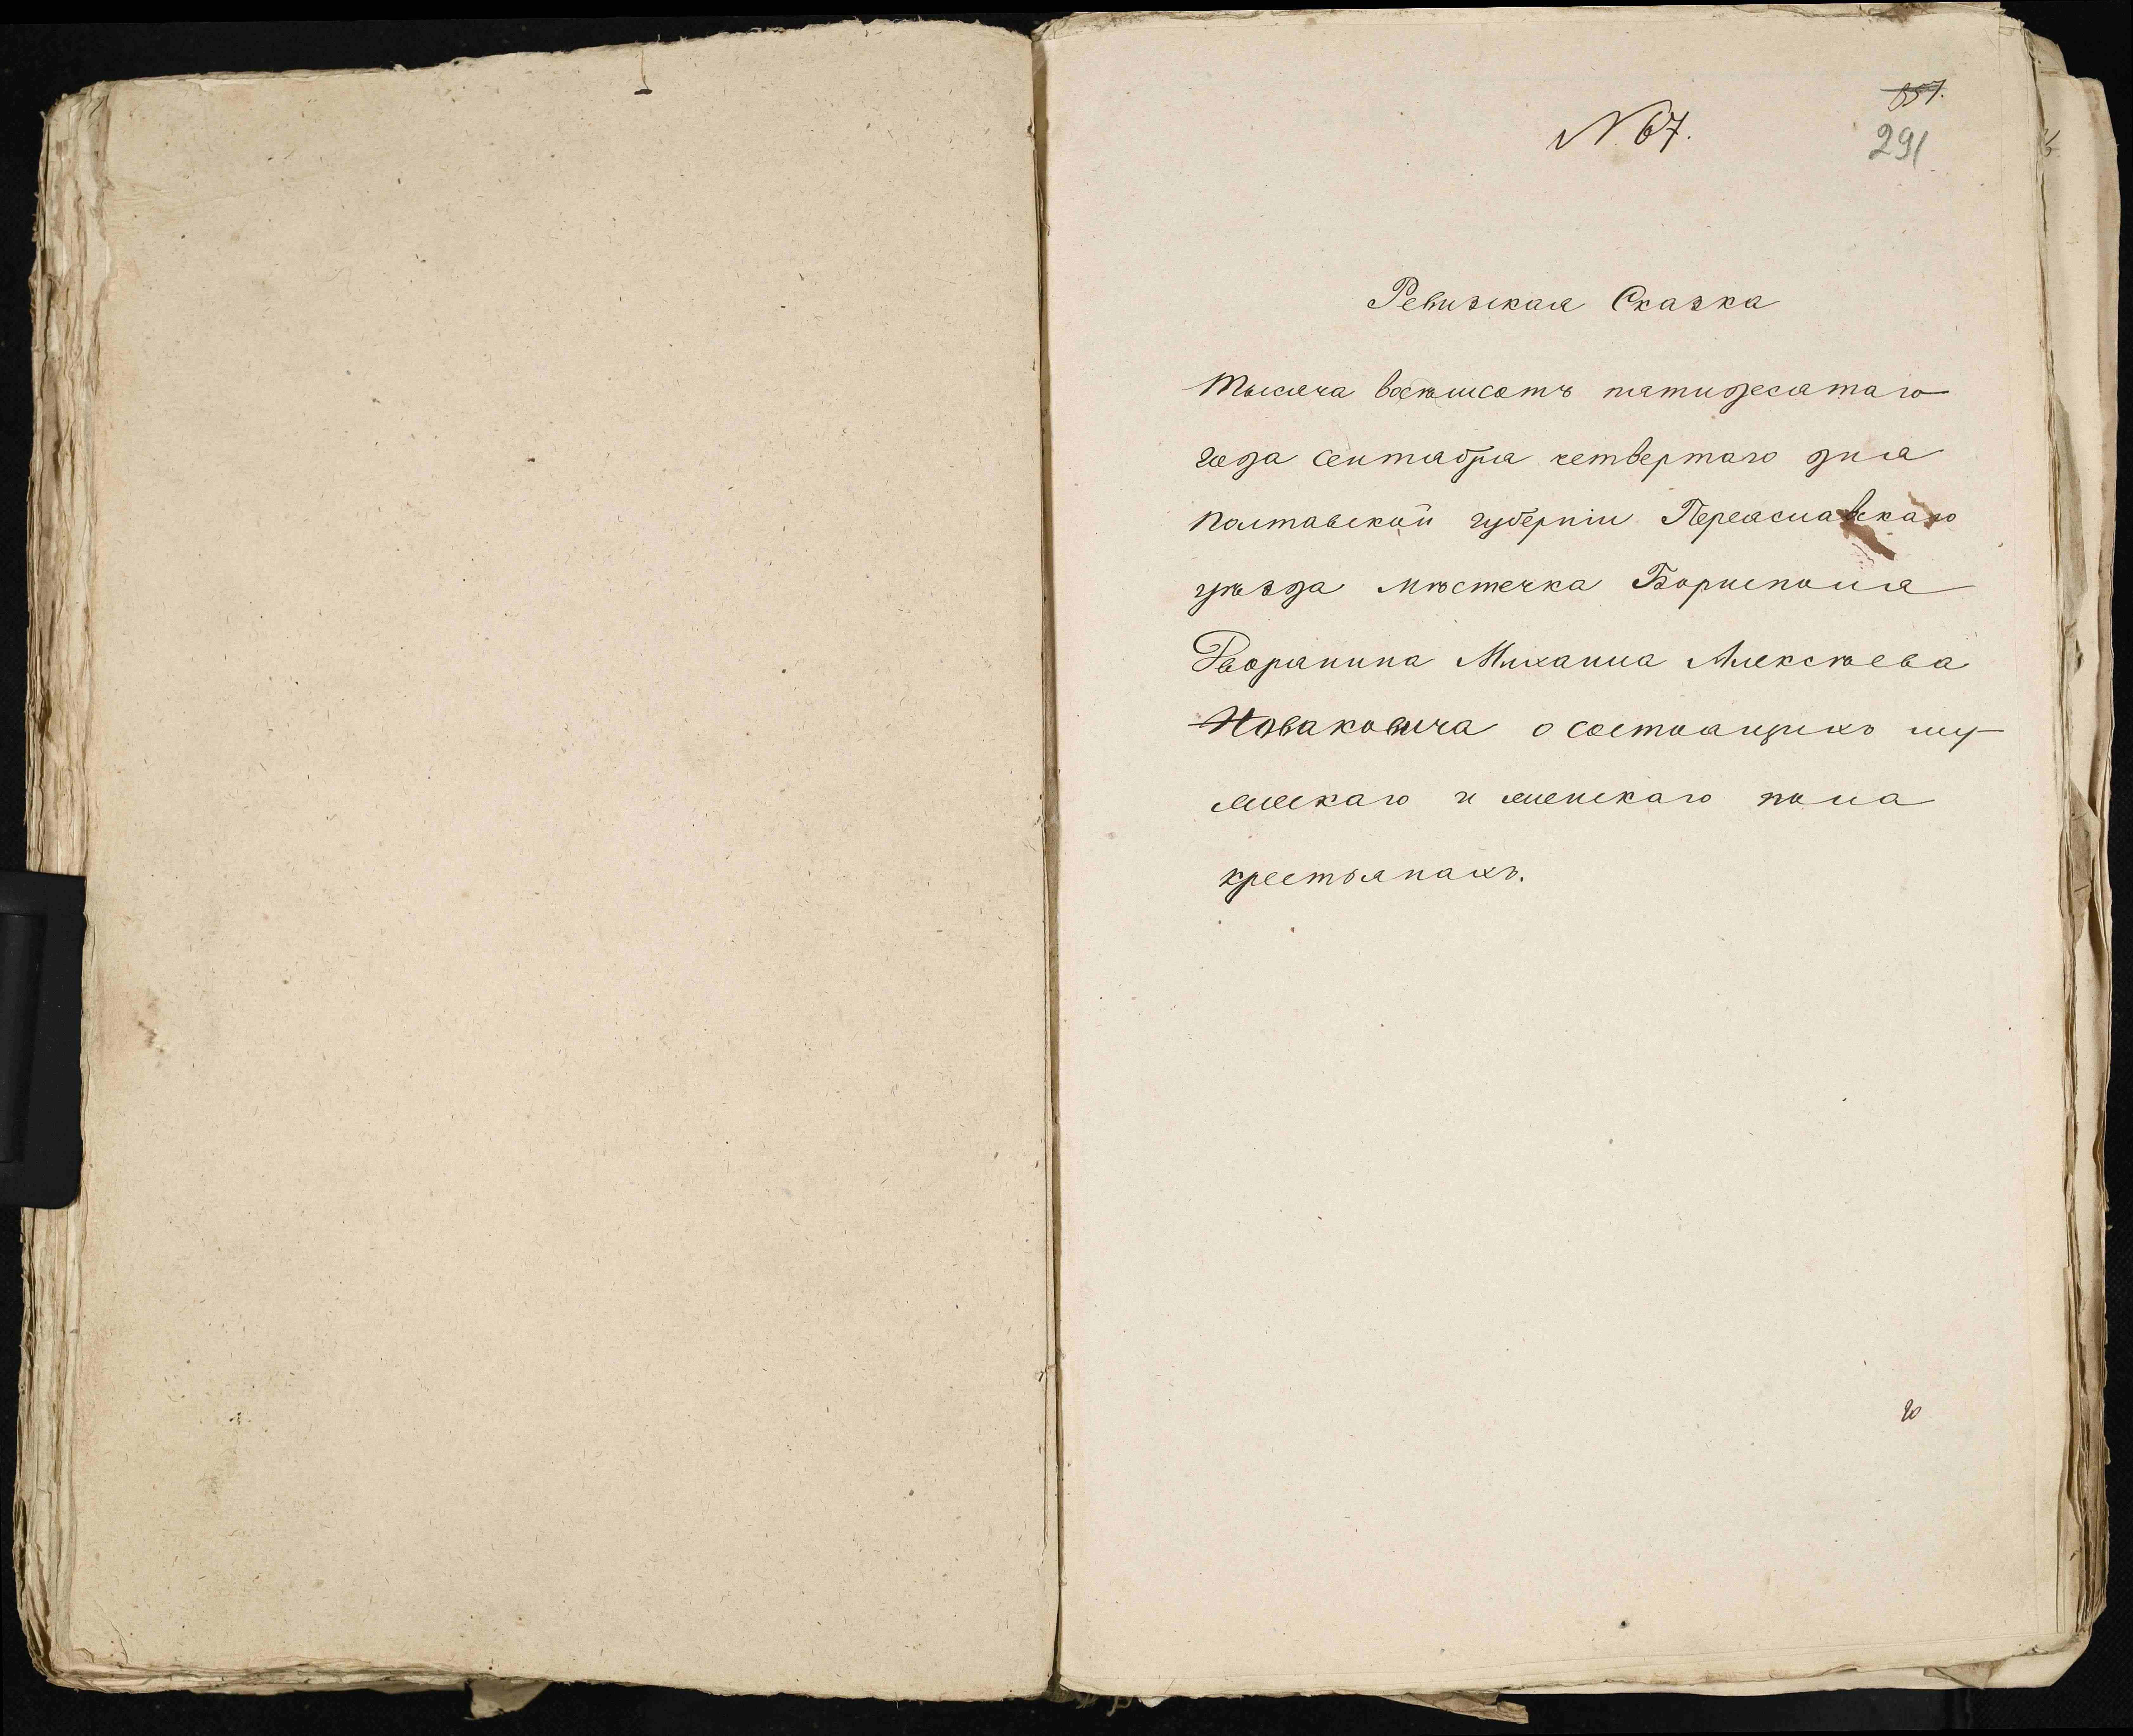 N 67.
291
Ревизская Сказка
Тысяча восѣмсотъ пятидесятаго
года сентября четвертаго дня
Полтавской губерніи Переяславскаго
уѣзда мѣстечка Борисполя
Дворянина Михаила Алексѣева
Новаковича о состоящихъ му-
жескаго и женскаго пола
крестьянахъ.